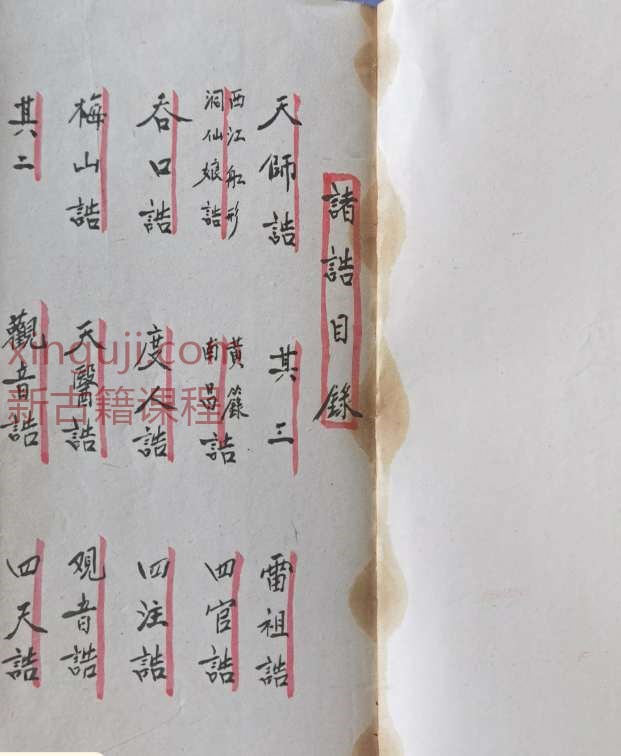 諸誥目錄
天師誥 其三 雷祖誥
西江船形洞仙娘誥 黃籙南昌誥 四官誥
吞口誥 度人誥 四注誥
梅山誥 天醫誥 观音誥
其二 觀音誥 四天誥
xinguji.com
新古籍课程